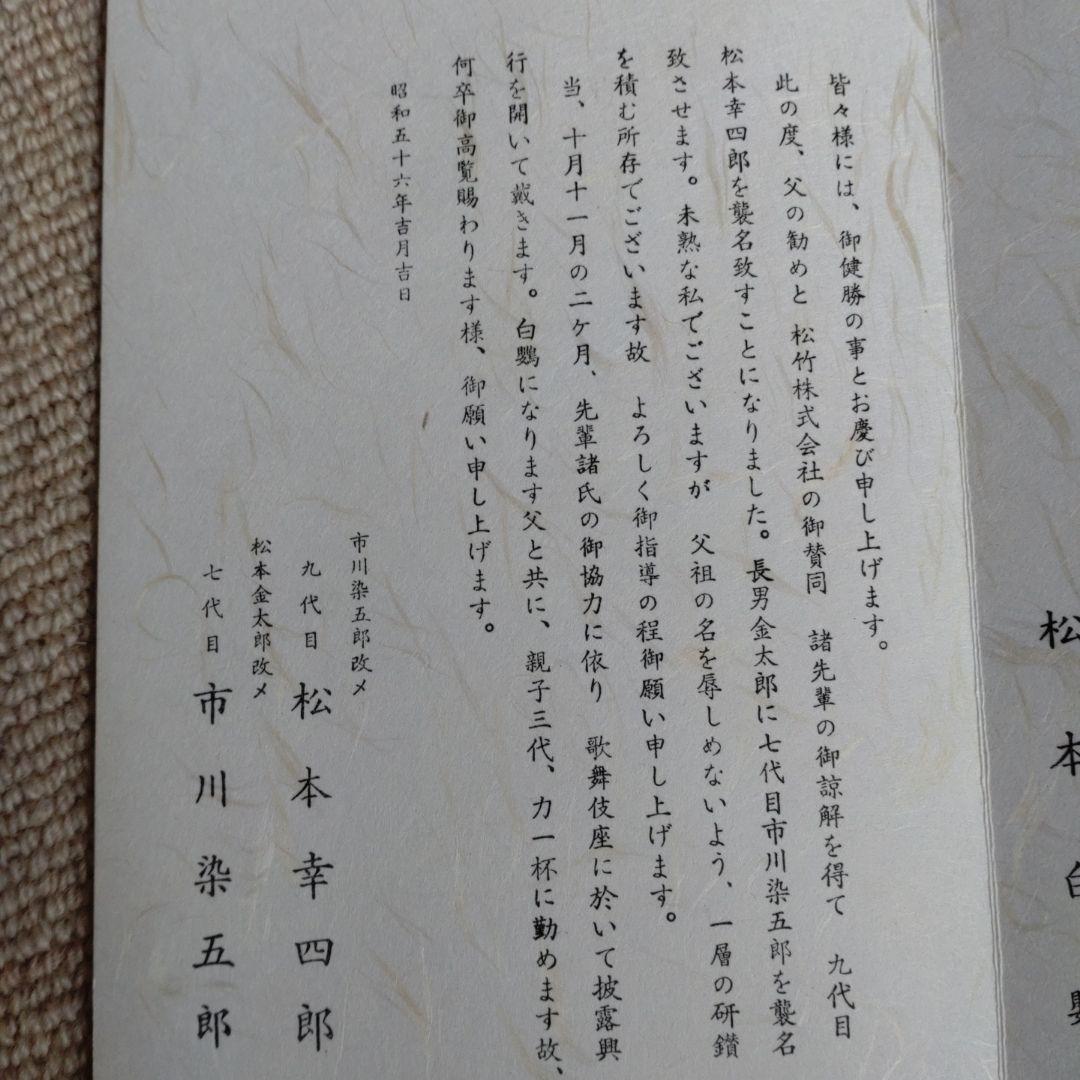 松本白鸚
皆々様には、御健勝の事とお慶び申し上げます。
此の度、父の勧めと 松竹株式会社の御賛同 諸先輩の御諒解を得て 九代目
松本幸四郎を襲名致すことになりました。長男金太郎に七代目市川染五郎を襲名
致させます。未熟な私でございますが 父祖の名を辱しめないよう、一層の研鑚
を積む所存でございます故 よろしく御指導の程御願い申し上げます。
当、十月十一月の二ケ月、先輩諸氏の御協力に依り 歌舞伎座に於いて披露興
行を開いて戴きます。白鸚になります父と共に、親子三代、力一杯に勤めます故、
何卒御高覧賜わります様、御願い申し上げます。
昭和五十六年吉月吉日
市川染五郎改メ
九代目 松本幸四郎
松本金太郎改メ
七代目 市川染五郎